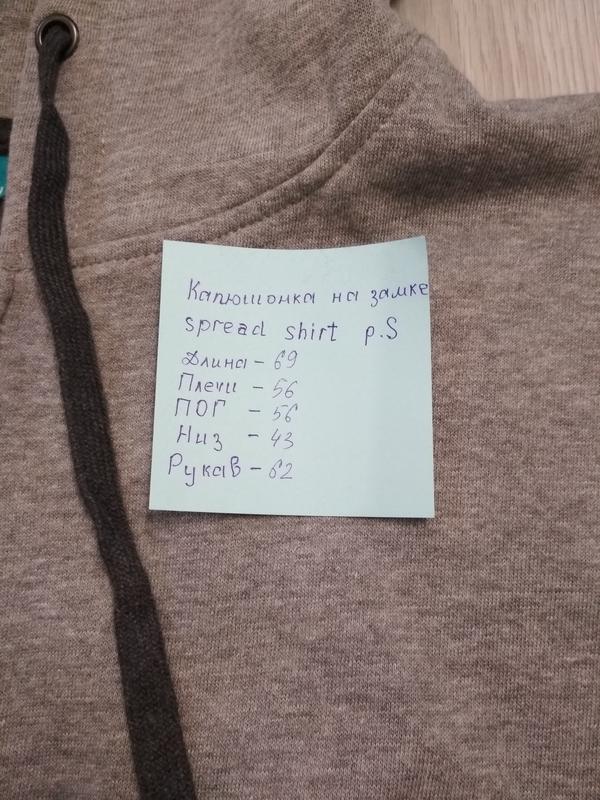 Капюшонка на замке
spread shirt р.S
Длина - 69
Плечи - 56
ПОГ - 56
Низ - 43
Рукав - 62